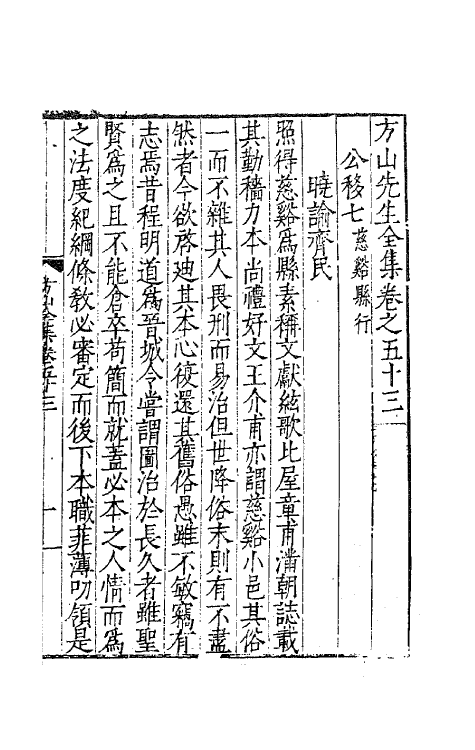 方山先生全集卷之五十三
公移七慈谿縣行
曉諭齊民
照得慈谿爲縣素稱文獻絃歌比屋章甫潘朝誌載
其勤穡力本尚禮好文王介甫亦謂慈谿小邑其俗
一而不雜其人畏刑而易治但世降俗末則有不盡
然者今欲啓迪其本心復還其舊俗愚雖不敏竊有
志焉昔程明道爲晉城令嘗謂圖治於長久者雖聖
賢爲之且不能倉卒苟簡而就蓋必本之人情而爲
之法度紀綱條敎必審定而後下本職菲薄叨領是
方山全集卷五十三
一